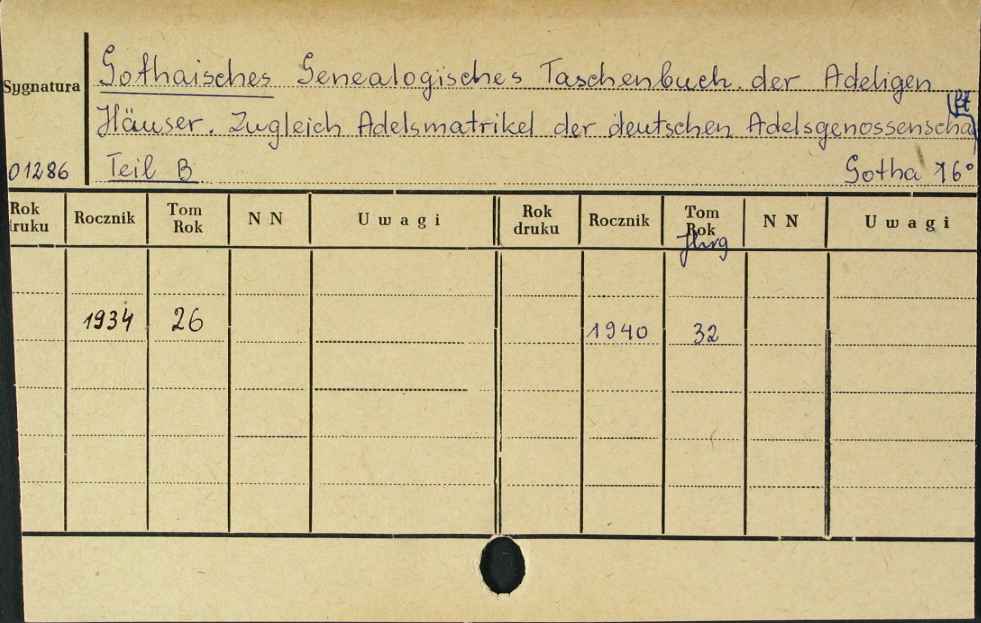 Sygnatura
Gothaisches Genealogisches Taschenbuch der Adeligen
Häuser. Zugleich Adelsmatrikel der deutschen Adelsgenossenschaft
01286 Teil B Gotha 16°
Rok druku Rocznik Tom Rok NN Uwagi Rok druku Rocznik Tom Rok NN Uwagi
Jhrg
1934 26 1940 32